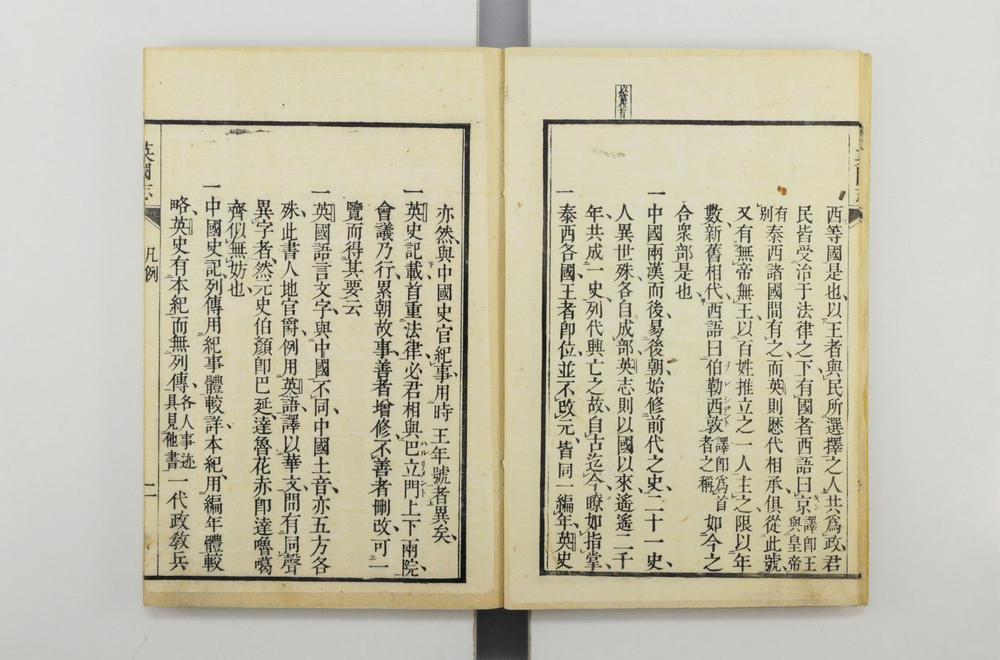 西等國是也以王者與民所選擇之人共爲政君
民皆受治于法律之下有國者西語曰京譯卽王與皇帝
有別泰西諸國間有之而英則歷代相承俱從此號
又有無帝無王以百姓推立之一人主之限以年
數新舊相代西語曰伯勒西敦譯卽爲首者之稱如今之
合衆部是也
一中國兩漢而後易後朝始修前代之史二十一史
人異世殊各自成部英志則以國以來遙遙二千
年共成一史列代興亡之故自古迄今瞭如指掌
一泰西各國王者卽位並不改元皆同一編年英史
亦然與中國史官紀事用時王年號者異矣
一英史記載首重法律必君相與巴立門上下兩院
會議乃行累朝故事善者增修不善者刪改可一
覽而得其要云
一英國語言文字與中國不同中國土音亦五方各
殊此書人地官爵例用英語譯以華文問有同聲
異字者然元史伯顏卽巴延達魯花赤卽達嚕噶
齊似無妨也
一中國史記列傳用紀事體較詳本紀用編年體較
略英史有本紀而無列傳各人事迹具見他書一代政敎兵
英國志
凡例
二